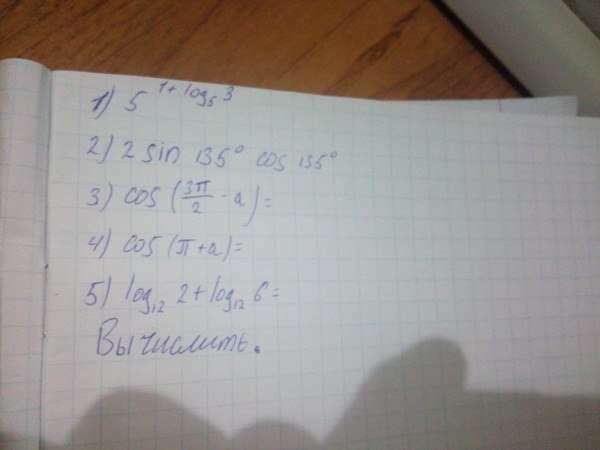 1) 5^{1+log_5 3}
2) 2 sin 135° cos 135°
3) cos (3π/2 - a) =
4) cos (π + a) =
5) log_12 2 + log_12 6 =
Вычислить.